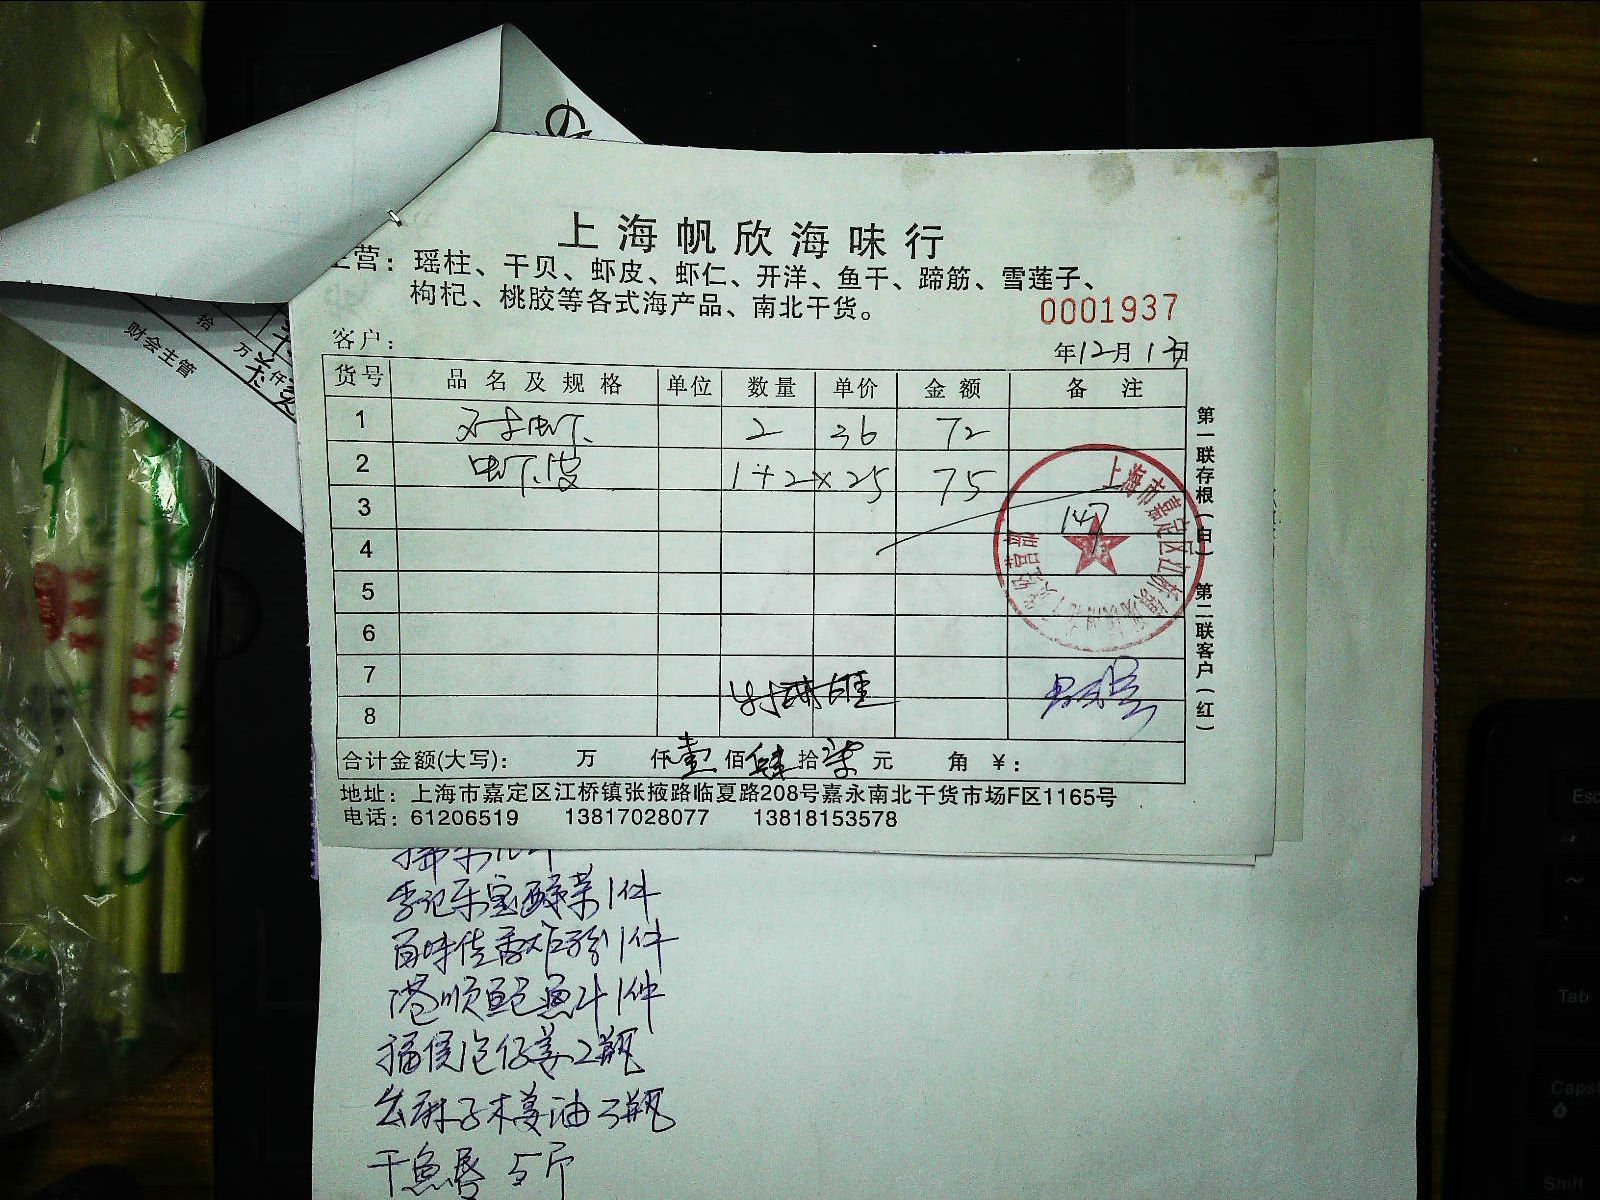 上海帆欣海味行
主营：瑶柱、干贝、虾皮、虾仁、开洋、鱼干、蹄筋、雪莲子、
枸杞、桃胶等各式海产品、南北干货。
0001937
客户：
年12月13日
货号 品名及规格 单位 数量 单价 金额 备注
1 2 36 72
2 虾皮 1+2×25 75
3 147
4
5
6
7
8
合计金额(大写)： 万 仟壹佰肆拾柒元 角 ￥：
地址：上海市嘉定区江桥镇张掖路临夏路208号嘉永南北干货市场F区1165号
电话：61206519 13817028077 13818153578
第一联存根(白) 第二联客户(红)
上海市嘉定区江桥
财会主管
拾 万 仟
李记乐宝酸菜1件
百味佳香炸粉1件
港顺鲍鱼汁1件
2瓶
木姜油3瓶
干鱼唇 5斤
Esc
~
Tab
Caps
Shift